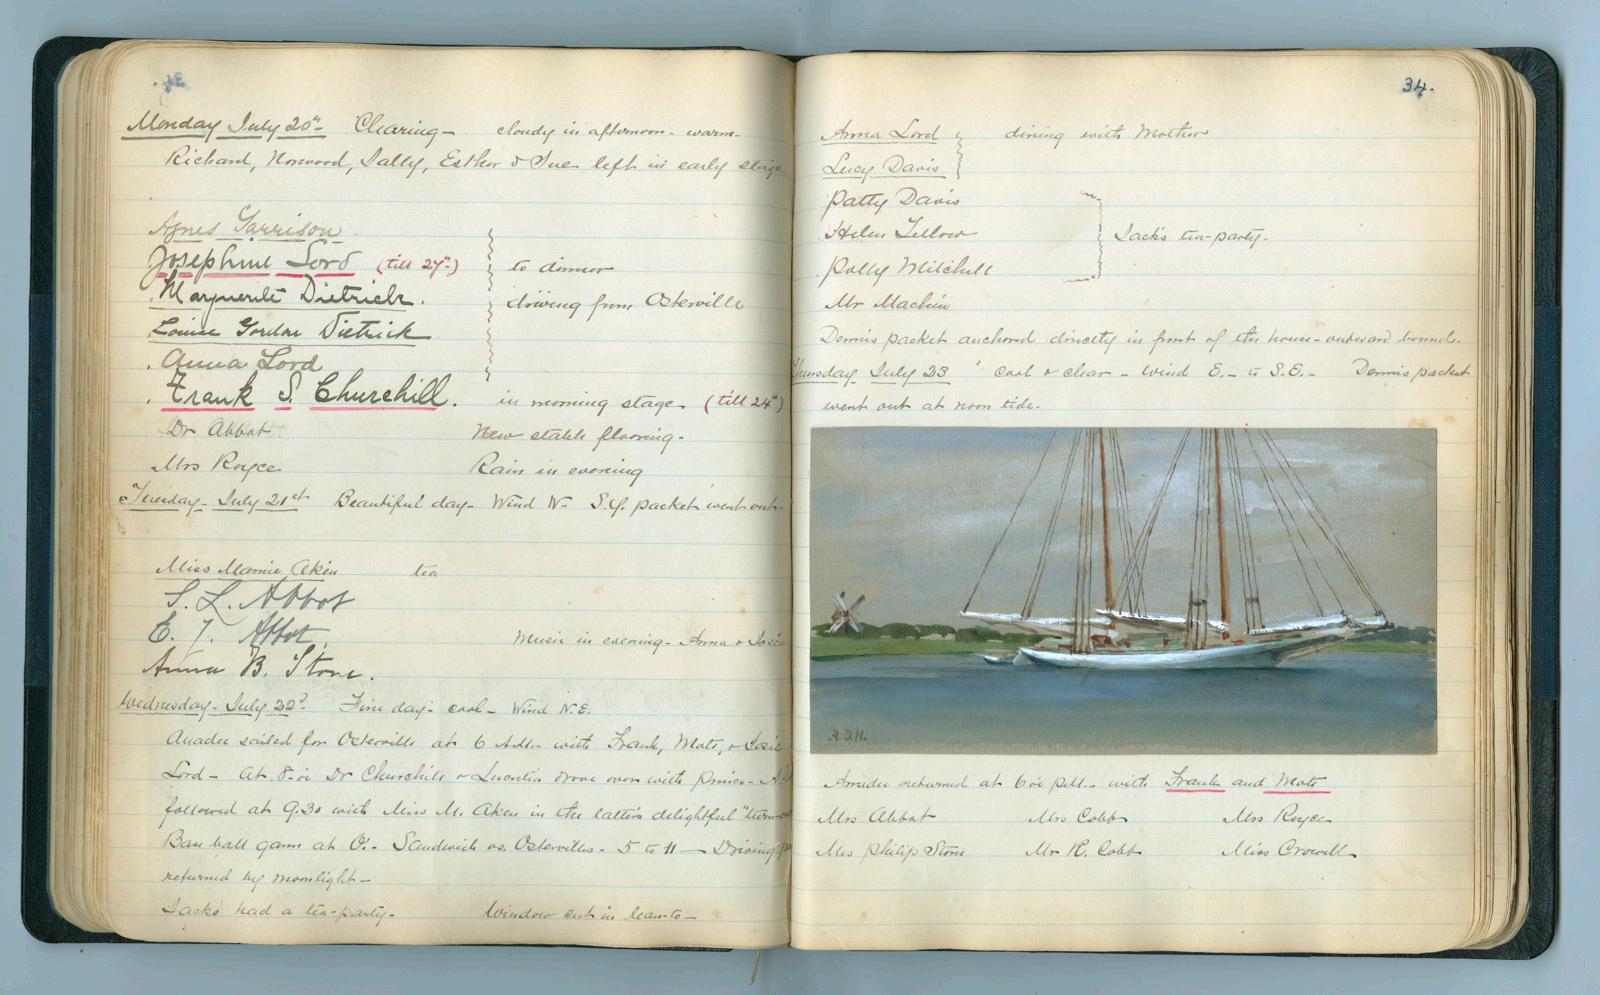 Monday July 20th Clearing - cloudy in afternoon - warm -
Richard, Norwood, Sally, Esther & Sue left in early stage
Agnes Garrison
Josephine Lord (till 27th)
to dinner
Marguerite Dietrich.
driving from Osterville
Louise Gordon Dietrick
Anna Lord
Frank S. Churchill. in morning stage (till 24th)
Dr Abbot New stable flooring.
Mrs Royce Rain in evening
Tuesday - July 21st Beautiful day - Wind N - S.Y. packet went out -
Miss Mamie Aken tea
S. L. Abbot
E. T. Abbot Music in evening - Anna & Josie
Anna B. Stone.
Wednesday - July 22d. Fine day - cool - Wind N.E.
sailed for Osterville at 6 A.M. with Frank, Mots, & Josie
Lord - At 8 Dr Churchill & Lucretia drove over with Prince -
followed at 9.30 with Miss M. Aken in the latter's delightful
Base ball game at O. - Sandwich vs. Osterville - 5 to 11 - Driving
returned by moonlight -
Jacks had a tea-party - Window cut in lean-to -
34.
Anna Lord dining with Mother
Lucy Davis
Patty Davis
Helen Jack's tea-party -
Polly Mitchell
Mr Machin
Dennis packet anchored directly in front of the house - outward bound.
Thursday July 23 cool & clear - Wind E. - to S.E. - Dennis packet
went out at noon tide.
A.D.H.
returned at 6 P.M. - with Frank and Mots
Mrs Abbot Mrs Cobb Mrs Royce
Mrs Philip Stone Mr R. Cobb Miss Crowell